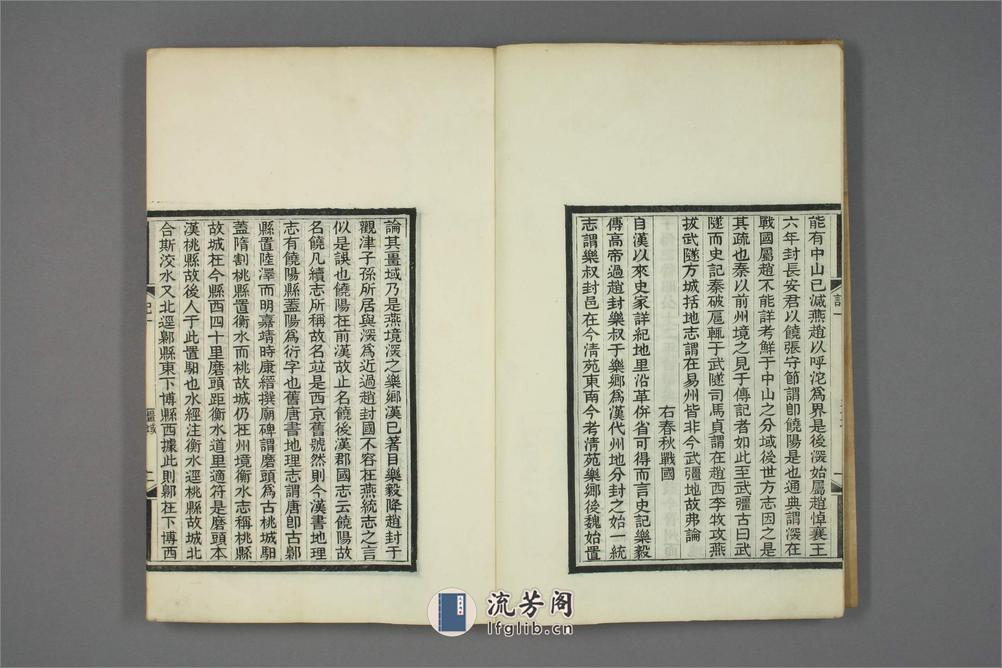 能有中山已滅燕趙以呼沱爲界是後深始屬趙悼襄王
六年封長安君以饒張守節謂卽饒陽是也通典謂深在
戰國屬趙不能詳考鮮于中山之分域後世方志因之是
其疏也秦以前州境之見于傳記者如此至武彊古曰武
隧而史記秦破扈輒于武隧司馬貞謂在趙西李牧攻燕
拔武隧方城括地志謂在易州皆非今武彊地故弗論
右春秋戰國
自漢以來史家詳紀地里沿革併省可得而言史記樂毅
傳高帝過趙封樂叔于樂鄉爲漢代州地分封之始一統
志謂樂叔封邑在今淸苑東南今考淸苑樂鄉後魏始置
記一
論其畺域乃是燕境深之樂鄉漢已著目樂毅降趙封于
觀津子孫所居與深爲近過趙封國不容在燕統志之言
似是誤也饒陽在前漢故止名饒後漢郡國志云饒陽故
名饒凡續志所稱故名竝是西京舊號然則今漢書地理
志有饒陽縣蓋陽爲衍字也舊唐書地理志謂唐卽古鄡
縣置陸澤而明嘉靖時康縉撰廟碑謂磨頭爲古桃城馹
蓋隋割桃縣置衡水而桃故城仍在州境衡水志稱桃縣
故城在今縣西四十里磨頭距衡水道里適符是磨頭本
漢桃縣故後人于此置馹也水經注衡水逕桃縣故城北
合斯洨水又北逕鄡縣東下博縣西據此則鄡在下博西
記一
疆域
二
流芳阁
lfglib.cn